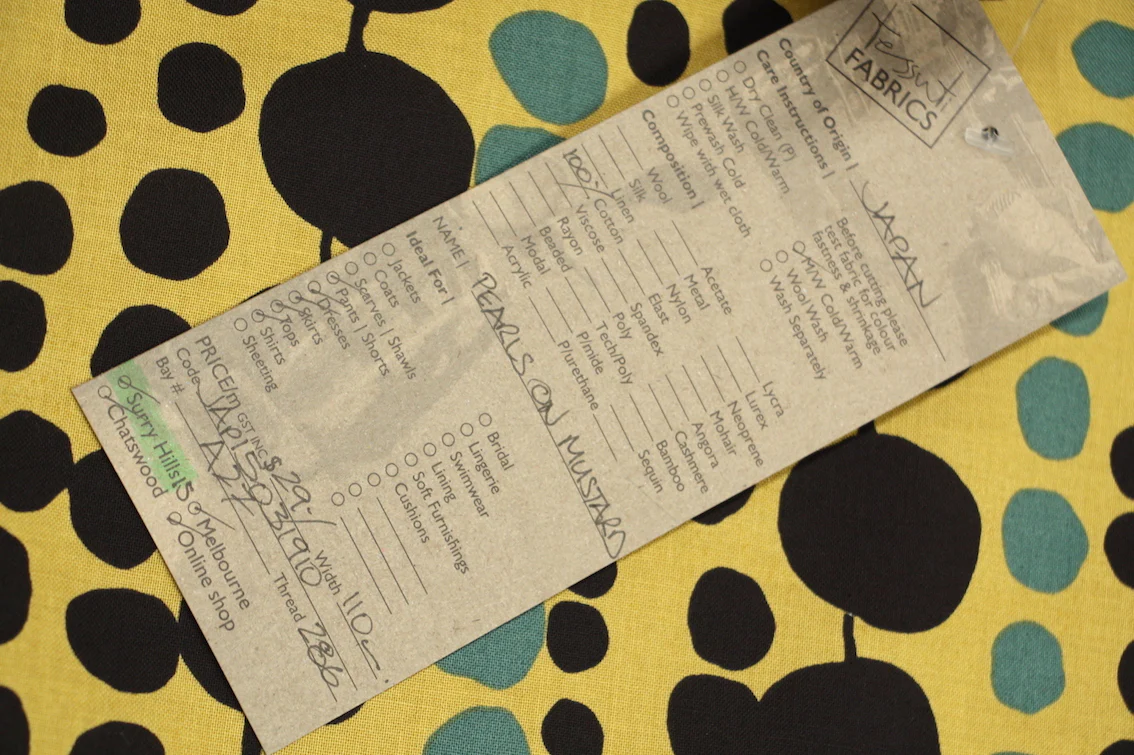 Tessuti
FABRICS
Country of Origin | JAPAN
Care Instructions |
Dry Clean (P)
H/W Cold/Warm
Silk Wash
Prewash Cold
Wipe with wet cloth
Before cutting please
test fabric for colour
fastness & shrinkage
H/W Cold/Warm
Wool Wash
Wash Separately
Composition |
Wool
Silk
Linen
100% Cotton
Viscose
Rayon
Beaded
Modal
Acrylic
Acetate
Metal
Nylon
Elast
Spandex
Poly
Tech/Poly
P/mide
P/urethane
Lycra
Lurex
Neoprene
Mohair
Angora
Cashmere
Bamboo
Sequin
NAME | PEARLS ON MUSTARD
Ideal For |
Jackets
Coats
Scarves | Shawls
Pants | Shorts
Dresses
Skirts
Tops
Shirts
Sheeting
Bridal
Lingerie
Swimwear
Lining
Soft Furnishings
Cushions
PRICE/m GST INC $29- Width 110c
Code Thread 286
Bay # A27
Surry Hills 15 Melbourne
Chatswood Online shop